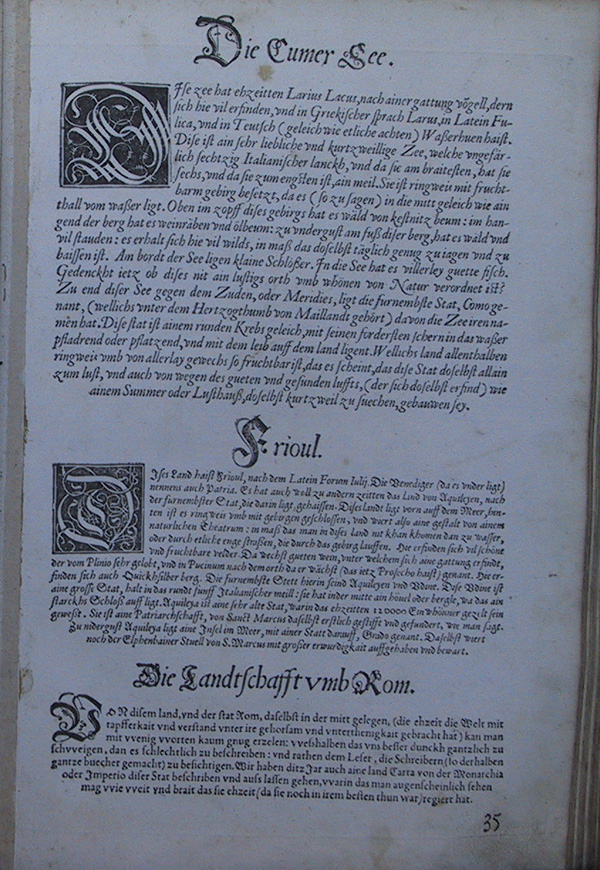 Die Cumer See.
DIse zee hat ehzeitten Larius Lacus, nach ainer gattung vögell, dern
sich hie vil erfinden, vnd in Griekischer sprach Larus, in Latein Fu-
lica, vnd in Teutsch (geleich wie etliche achten) Waßerhuen haist.
Dise ist ain sehr liebliche vnd kurtzweillige Zee, welche vngefär-
lich sechtzig Italianischer lanckh, vnd da sie am braitesten, hat sie
sechs, vnd da sie zum engsten ist, ain meil. Sie ist ringweis mit frucht-
barm gebirg besetzt, da es (so zu sagen) in die mitt geleich wie ain
thall vom waßer ligt. Oben im zopff dises gebirgs hat es wald von kestnitz beum: im han-
gend der berg hat es weinräben vnd ölbeum: zu vndergust am fuß diser berg, hat es wäld vnd
vil stauden: es erhalt sich hie vil wilds, in maß das doselbst täglich genug zu iagen vnd zu
baissen ist. Am bordt der See ligen klaine Schlößer. In die See hat es villerley guette fisch.
Gedenckht ietz ob dises nit ain lustigs orth vmb whönen von Natur verordnet ist?
Zu end diser See gegen dem Zuden, oder Meridies, ligt die furnembste Stat, Como ge-
nant, (wellichs vnter dem Hertzogthumb von Maillandt gehört) davon die Zee iren na-
men hat. Dise stat ist ainem runden Krebs geleich, mit seinen fordersten schern in das waßer
pfladrend oder pflatzend, vnd mit dem leib auff dem land ligent. Wellichs land allenthalben
ringweis vmb von allerlay gewechs so fruchtbar ist, das es scheint, das dise Stat doselbst allain
zum lust, vnd auch von wegen des gueten vnd gesunden luffts, (der sich doselbst erfind) wie
ainem Summer oder Lusthauß, doselbst kurtzweil zu suechen, gebauwen sey.
Frioul.
DIses Land haist Frioul, nach dem Latein Forum Iulij. Die Venediger (da es vnder ligt)
nennens auch Patria. Es hat auch woll zu andern zeitten das Land von Aquileyen, nach
der furnembster Stat, die darin ligt, gehaissen. Dises landt ligt vorn auff dem Meer, hin-
ten ist es ringweis vmb mit gebirgen geschlossen, vnd wert also aine gestalt von ainem
naturlichen Theatrum: in maß das man in dises land nit khan khomen dan zu wasser,
oder durch etliche enge straßen, die durch das gebirg lauffen. Hie erfinden sich vil schöne
vnd fruchtbare velder. Da wechst gueten wein, vnter welchem sich aine gattung erfindt,
der vom Plinio sehr gelobt, vnd in Pucinum nach dem orth da er wächst (das ietz Prosecho haist) genant. Hie er-
finden sich auch Quickhsilber berg. Die furnembste Stett hierin seind Aquileyen vnd Vdone. Dise Vdone ist
aine grosse Stat, halt in das rundt funff Italianischer meill: sie hat inder mitte ain höuel oder bergle, wa das ain
starckhs Schloß auff ligt. Aquileya ist aine sehr alte Stat, warin das ehzeitten 12 0000 Einwhöner gezelt sein
gewest. Sie ist aine Patriarchschafft, von Sanct Marcus daselbst erstlich gestifft vnd gefundert, wie man sagt.
Zu nidergust Aquileya ligt eine Insel im Meer, mit ainer Statt darauff, Grado genant. Daselbst wert
noch der Elphenbainer Stuell von S. Marcus mit großer erwurdigkait auffgehaben vnd bewart.
Die Landtschafft vmb Rom.
VON disem land, vnd der stat Rom, daselbst in der mitt gelegen, (die ehzeit die Welt mit
tapfferkait vnd verstand vnter ire gehorsam vnd vnterthenigkait gebracht hat) kan man
mit vvenig vvorten kaum gnug erzelen: vveshalben das vns besser dunckh gantzlich zu
schvveigen, dan es schlechtlich zu beschreiben: vnd rathen dem Leser, die Schreibern (so derhalben
gantze buecher gemacht) zu besichtigen. Wir haben ditz Jar auch aine land Carta von der Monarchia
oder Imperio diser Stat beschriben vnd auss lassen gehen, vvarin das man augenscheinlich sehen
mag vvie vveit vnd brait das sie ehzeit (da sie noch in irem besten thun war) regiert hat.
35